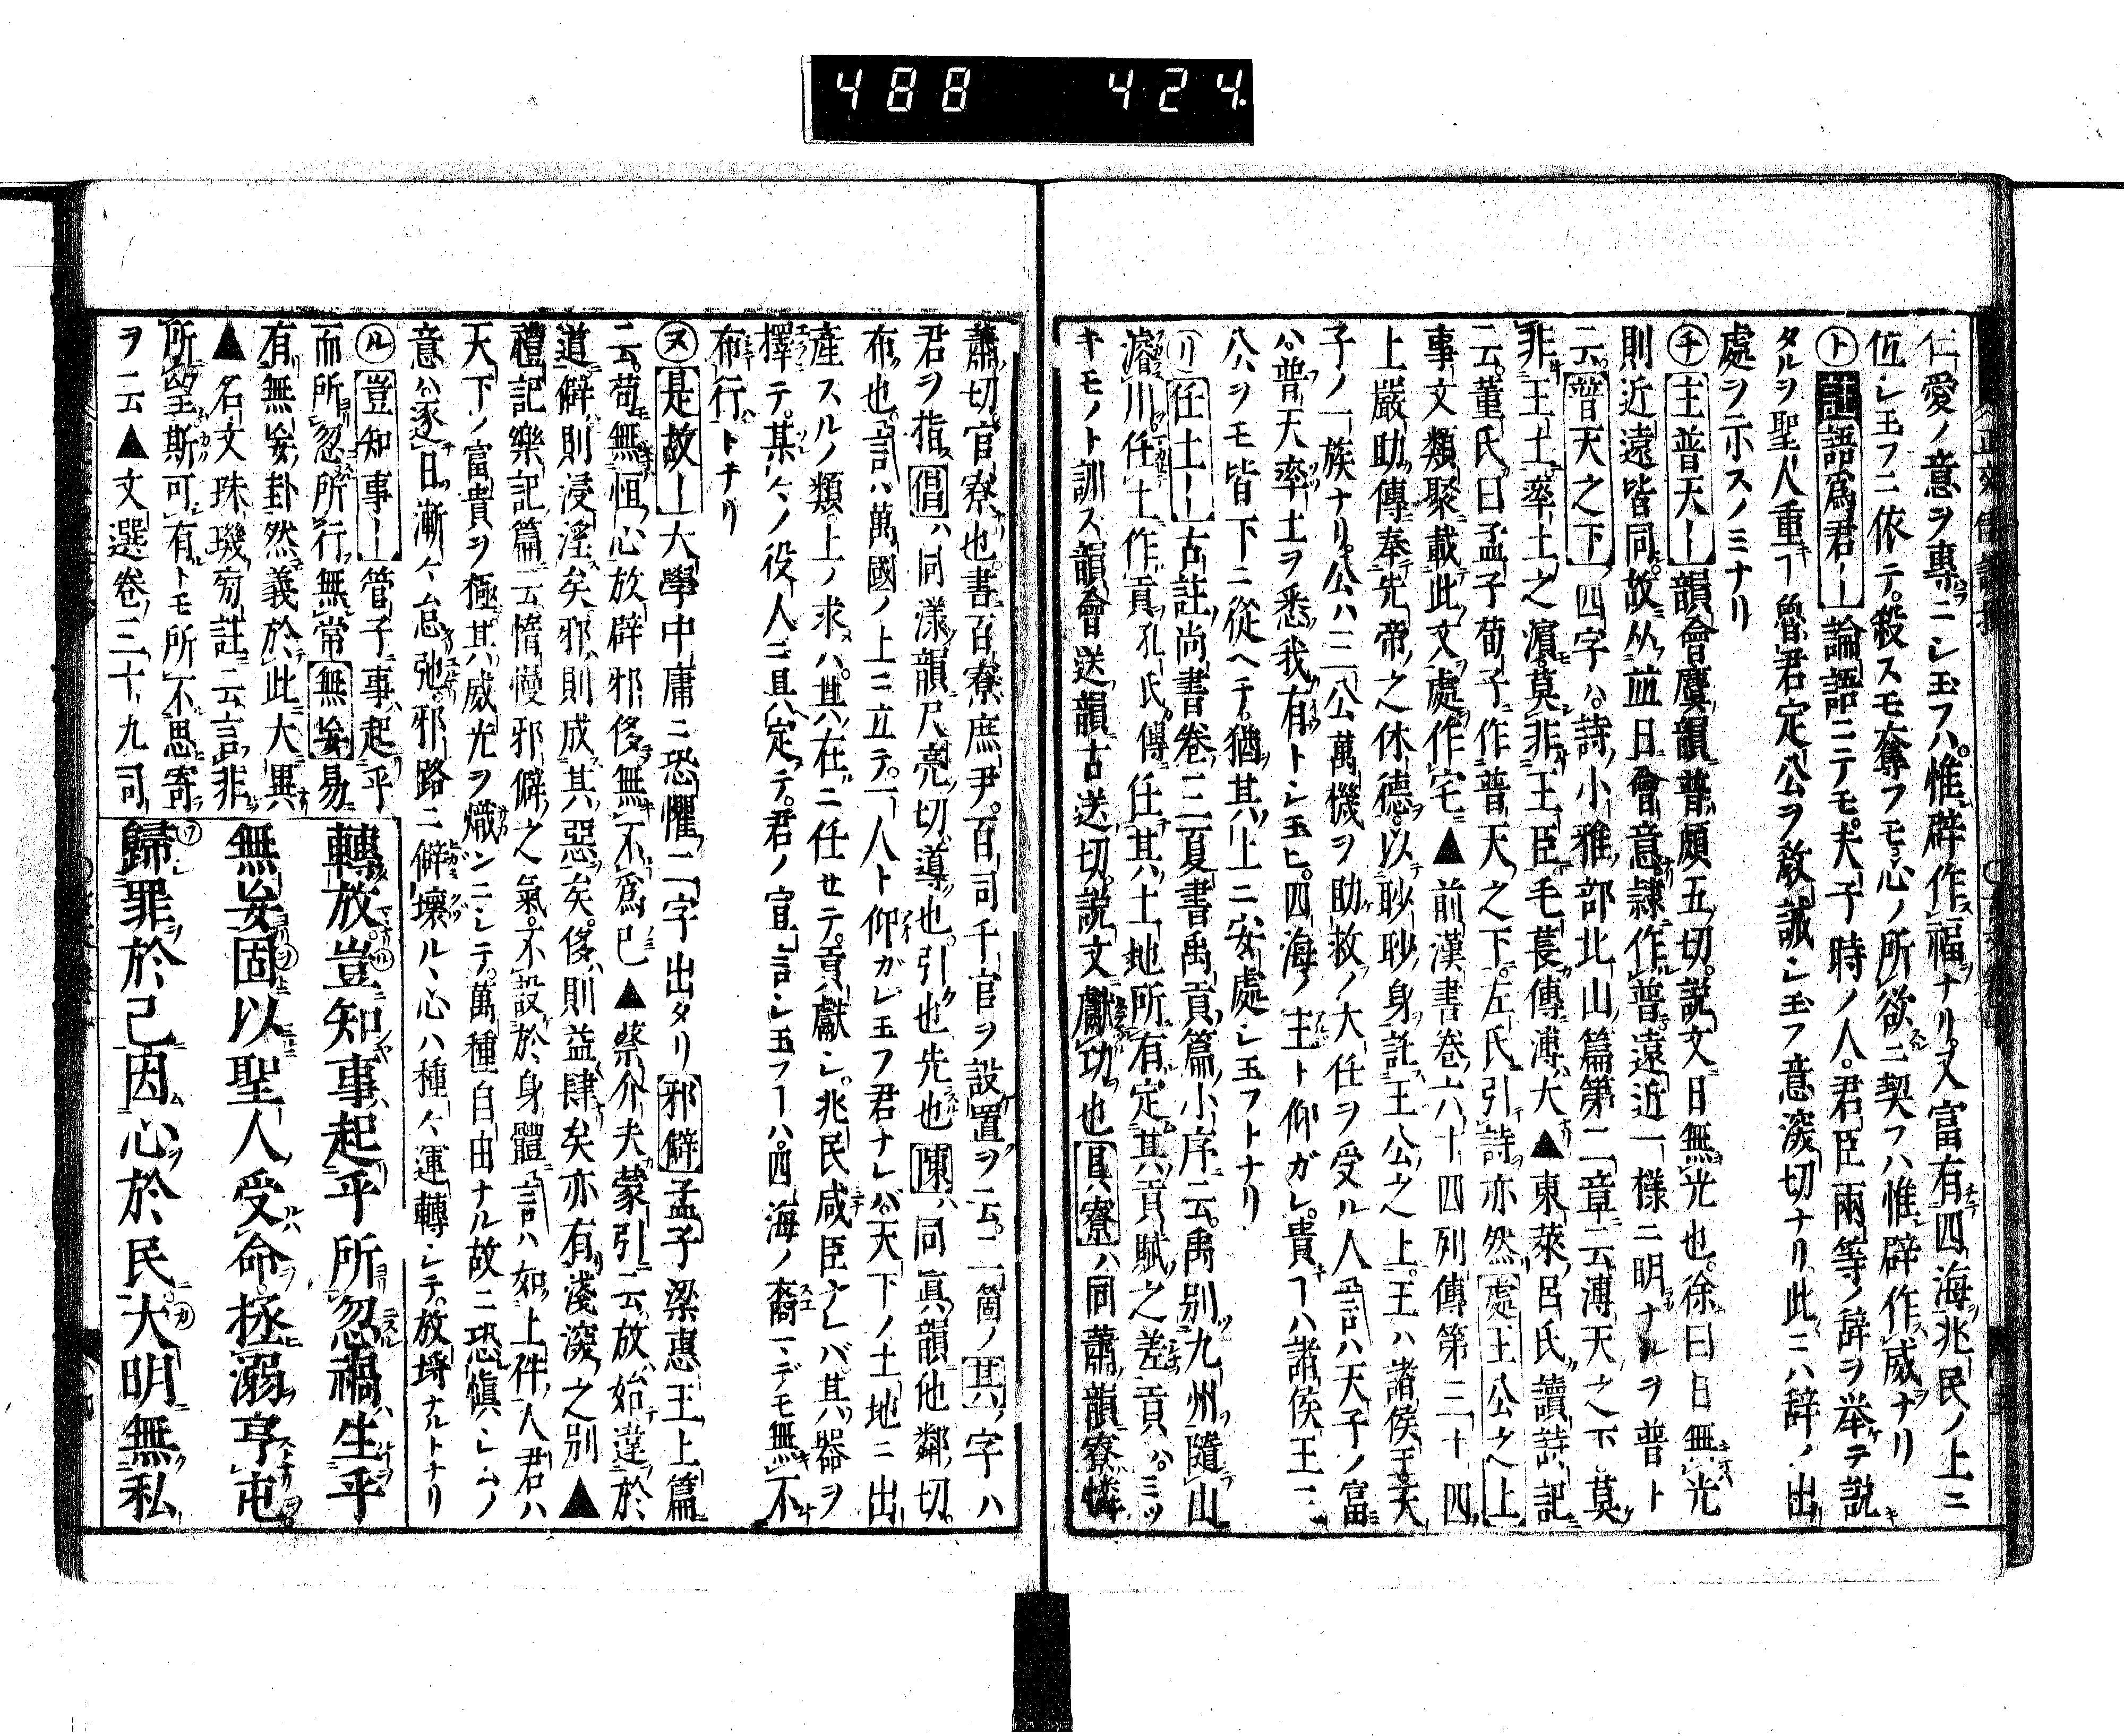 488 424
仁愛ノ意ヲ專ニシ玉フハ惟辟作福ナリ又富有四海兆民ノ上ニ
位シ玉フニ依テ殺スモ奪フモ心ノ所欲ニ契フハ惟辟作威ナリ
㋣註語爲君ー論語ニテモ夫子時ノ人君臣兩等ノ辞ヲ举テ説
タルヲ聖人重ヿ魯君定公ヲ敎誡シ玉フ意深切ナリ此ニハ辞ノ出
處ヲ示スノミナリ
㋠主普天ー韻會麌韻普頗五切説文日無光也徐曰日無光
則近遠皆同故从並日會意隷作普遠近一樣ニ明ナルヲ普ト
云普天之下四字ハ詩小雅部北山篇第二章云溥天之下莫
非王土率土之濱莫非王臣毛萇傳溥大▲東萊呂氏讀詩記
云董氏曰孟子荀子作普天之下左氏引詩亦然處王公之上
事文類聚載此文處作宅▲前漢書卷六十四列傳第三十四
上嚴助傳奉先帝之休德以眇眇身託王公之上王ハ諸侯王天
子ノ一族ナリ公ハ三公萬機ヲ助救ノ大任ヲ受ル人言ハ天子ノ富
ハ普天率土ヲ悉我有トシ玉ヒ四海ノ主ト仰ガレ貴ヿハ諸侯王三
公ヲモ皆下ニ從ヘテ猶其上ニ安處シ玉フトナリ
㋷任土ー古註尚書卷三夏書禹貢篇小序云禹别九州隨山
濬川任土作貢孔氏傳任其土地所有定其貢賦之差貢ハミツ
キモノト訓ス韻會送韻古送切説文獻功也具寮ハ同蕭韻寮憐
蕭切官寮也書百寮庶尹百司千官ヲ設置ヲ云二箇ノ其字ハ
君ヲ指倡ハ同漾韻尺亮切導也引也先也陳ハ同眞韻他鄰切
布也言ハ萬國ノ上ニ立テ一人ト仰ガレ玉フ君ナレバ天下ノ土地ニ出
產スルノ類上ノ求ハ其在ニ任セテ貢獻シ兆民咸臣ナレバ其器ヲ
擇テ某々ノ役人ニ具ヘ定テ君ノ宣言シ玉フヿハ四海ノ裔マデモ無不
布行トナリ
㋦是故ー大學中庸ニ恐懼二字出タリ邪僻孟子梁惠王上篇
云苟無恒心放辟邪侈無不爲已▲蔡介夫蒙引云放始違於
道僻則浸淫矣邪則成其惡矣侈則益肆矣亦有淺深之別▲
禮記樂記篇云惰慢邪僻之氣不設於身體言ハ如上件人君ハ
天下ノ富貴ヲ極其威光ヲ熾ンニシテ萬種自由ナル故ニ恐愼シムノ
意ハ逐日漸々怠弛邪路ニ僻壞ル心ハ種々運轉シテ放埒ナルトナリ
㋸豈知事ー管子事起乎
而所忽所行無常無妄易
有無妄卦然義於此大異
▲名文珠璣旁註云言非
所望斯可有トモ所不思寄
ヲ云▲文選卷三十九司
轉放豈知事起乎所忽禍生乎
無妄固以聖人受命拯溺亨屯
歸罪於己因心於民大明無私